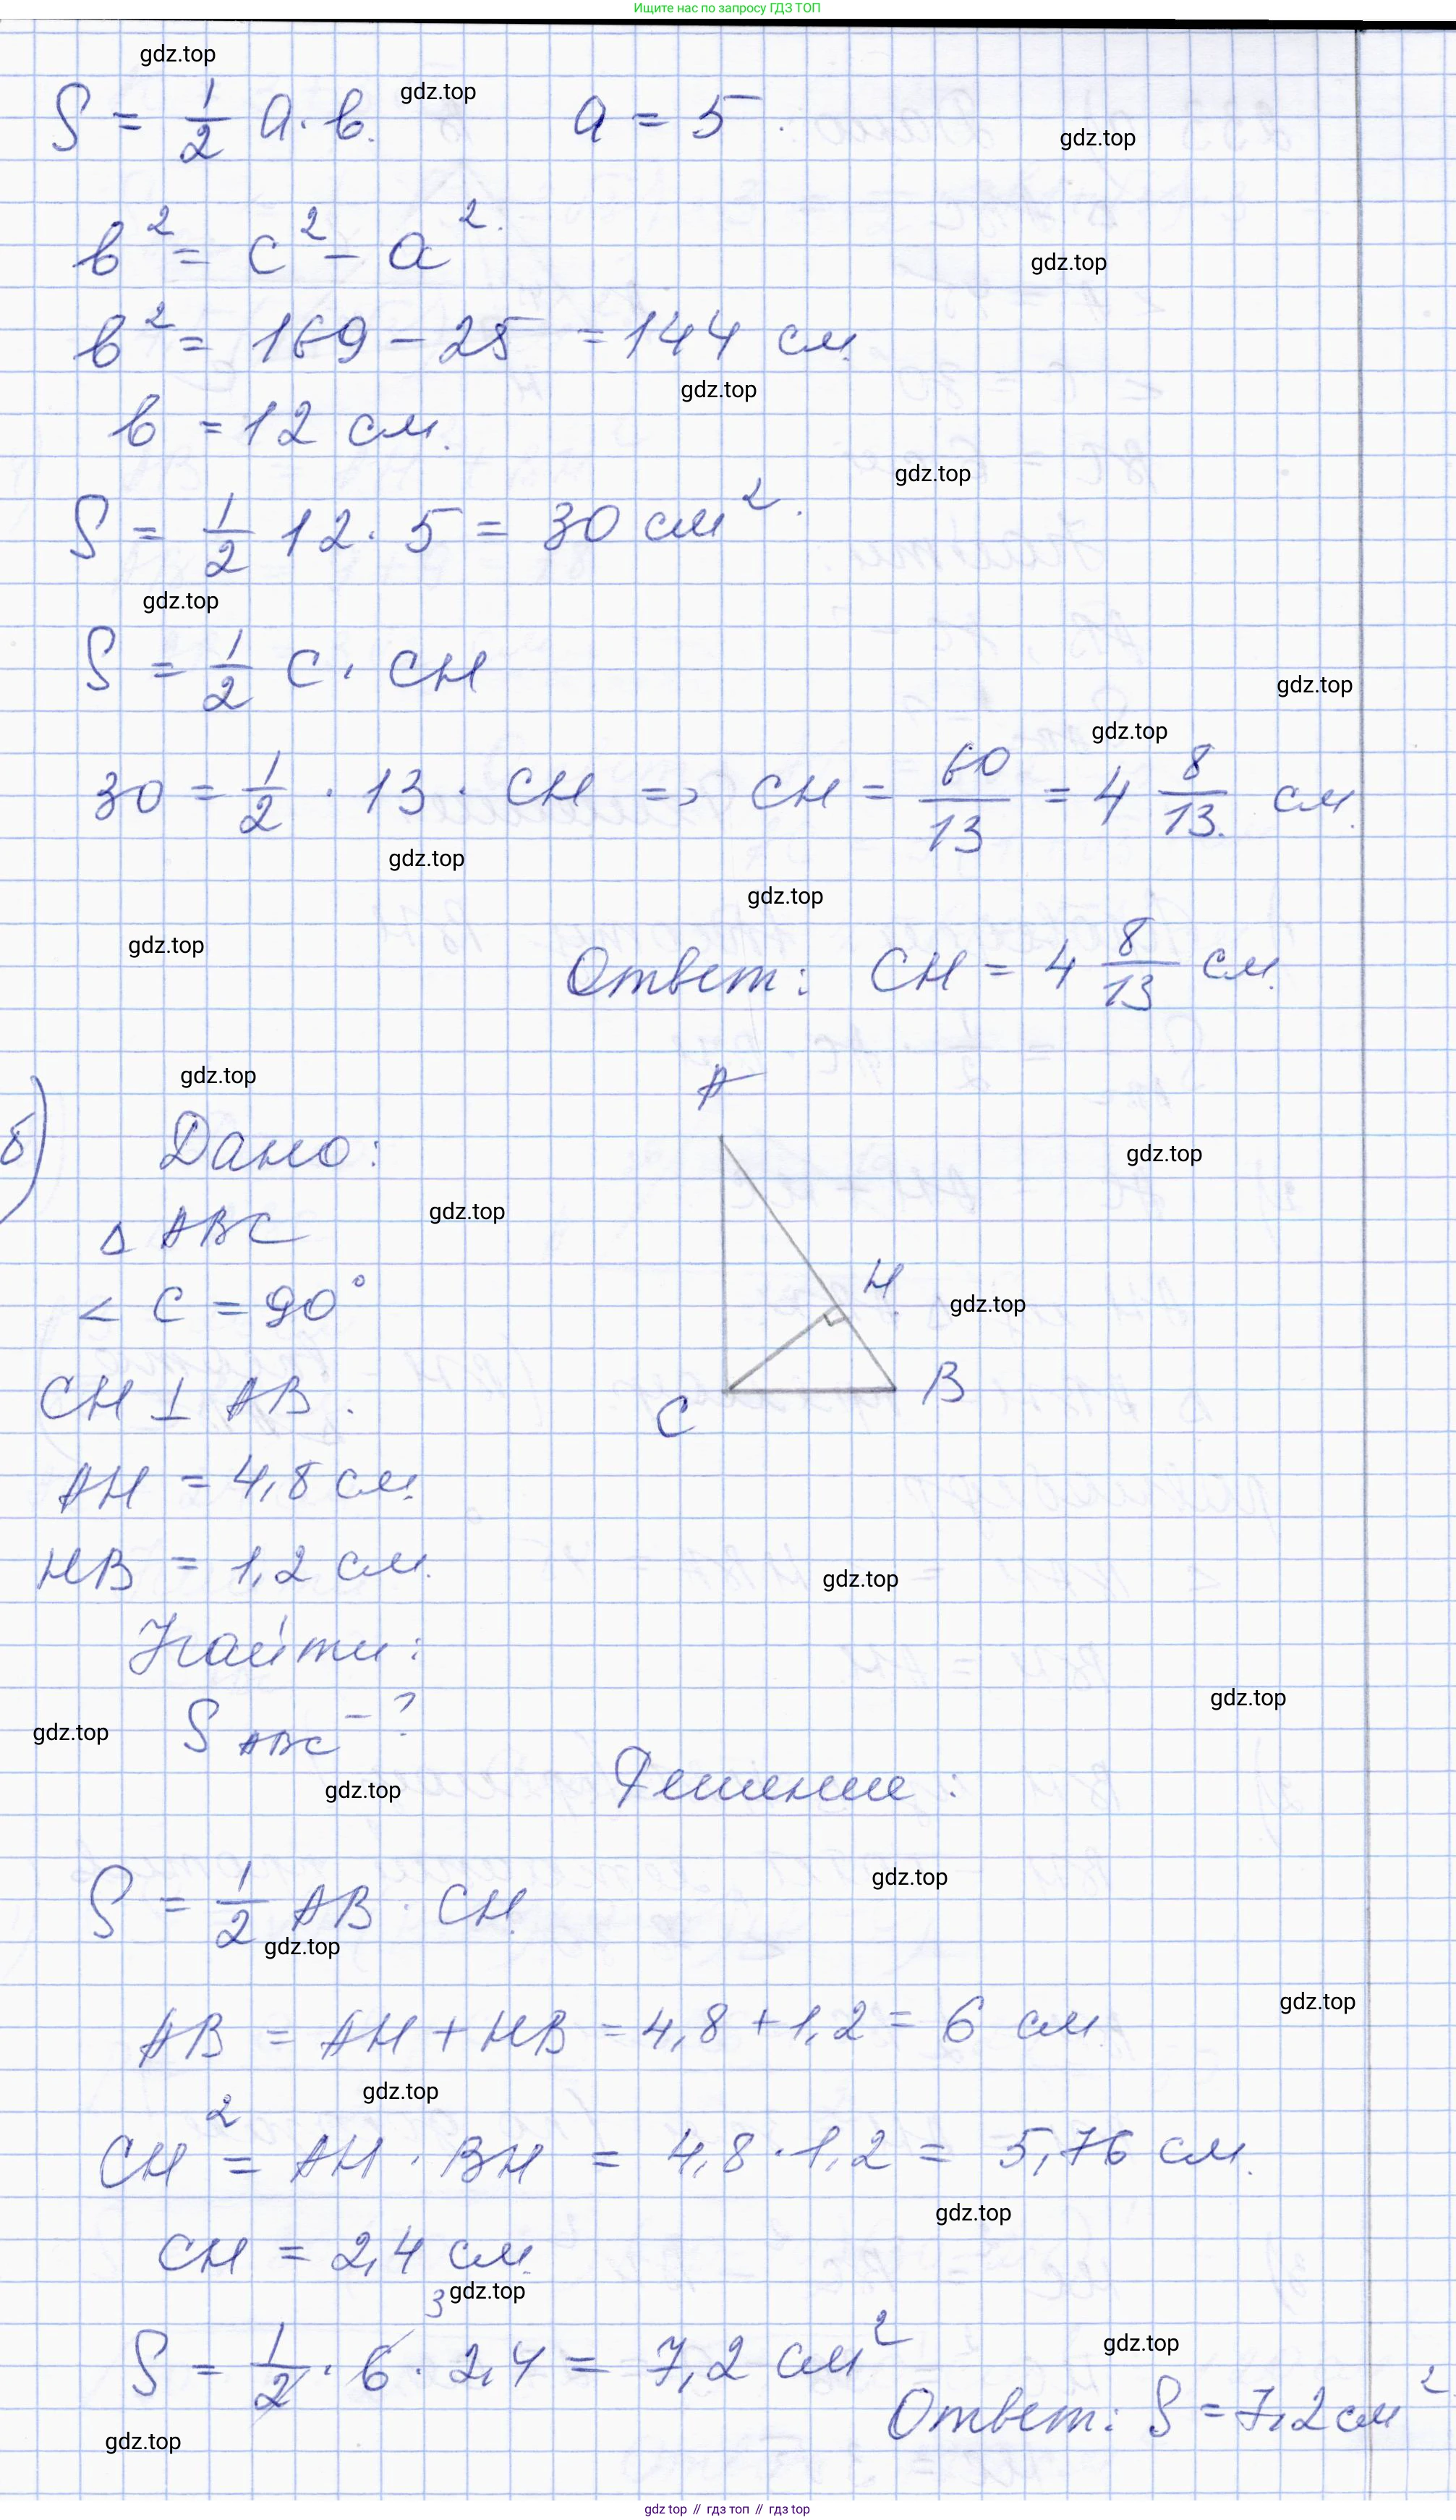 Ищите нас по запросу ГДЗ ТОП
gdz.top
S = 1/2 a · в. gdz.top a = 5.
gdz.top
в² = c² - a².
gdz.top
в² = 169 - 25 = 144 см
gdz.top
в = 12 см.
gdz.top
S = 1/2 12 · 5 = 30 см².
gdz.top
S = 1/2 c · CH
gdz.top
gdz.top
30 = 1/2 · 13 · CH => CH = 60/13 = 4 8/13 см.
gdz.top
gdz.top
gdz.top
Ответ: CH = 4 8/13 см.
gdz.top
A
б) Дано:
gdz.top
Δ ABC
gdz.top
< C = 90°
H
gdz.top
CH ⊥ AB.
B
C
AH = 4,8 см.
HB = 1,2 см.
gdz.top
Найти:
gdz.top
S ABC - ?
gdz.top
gdz.top
Решение:
gdz.top
S = 1/2 AB · CH
gdz.top
gdz.top
AB = AH + HB = 4,8 + 1,2 = 6 см
gdz.top
CH² = AH · BH = 4,8 · 1,2 = 5,76 см.
gdz.top
CH = 2,4 см.
gdz.top
3
S = 1/2 · 6 · 2,4 = 7,2 см²
gdz.top
Ответ: S = 7,2 см²
gdz.top
gdz.top // гдз топ // гдз top